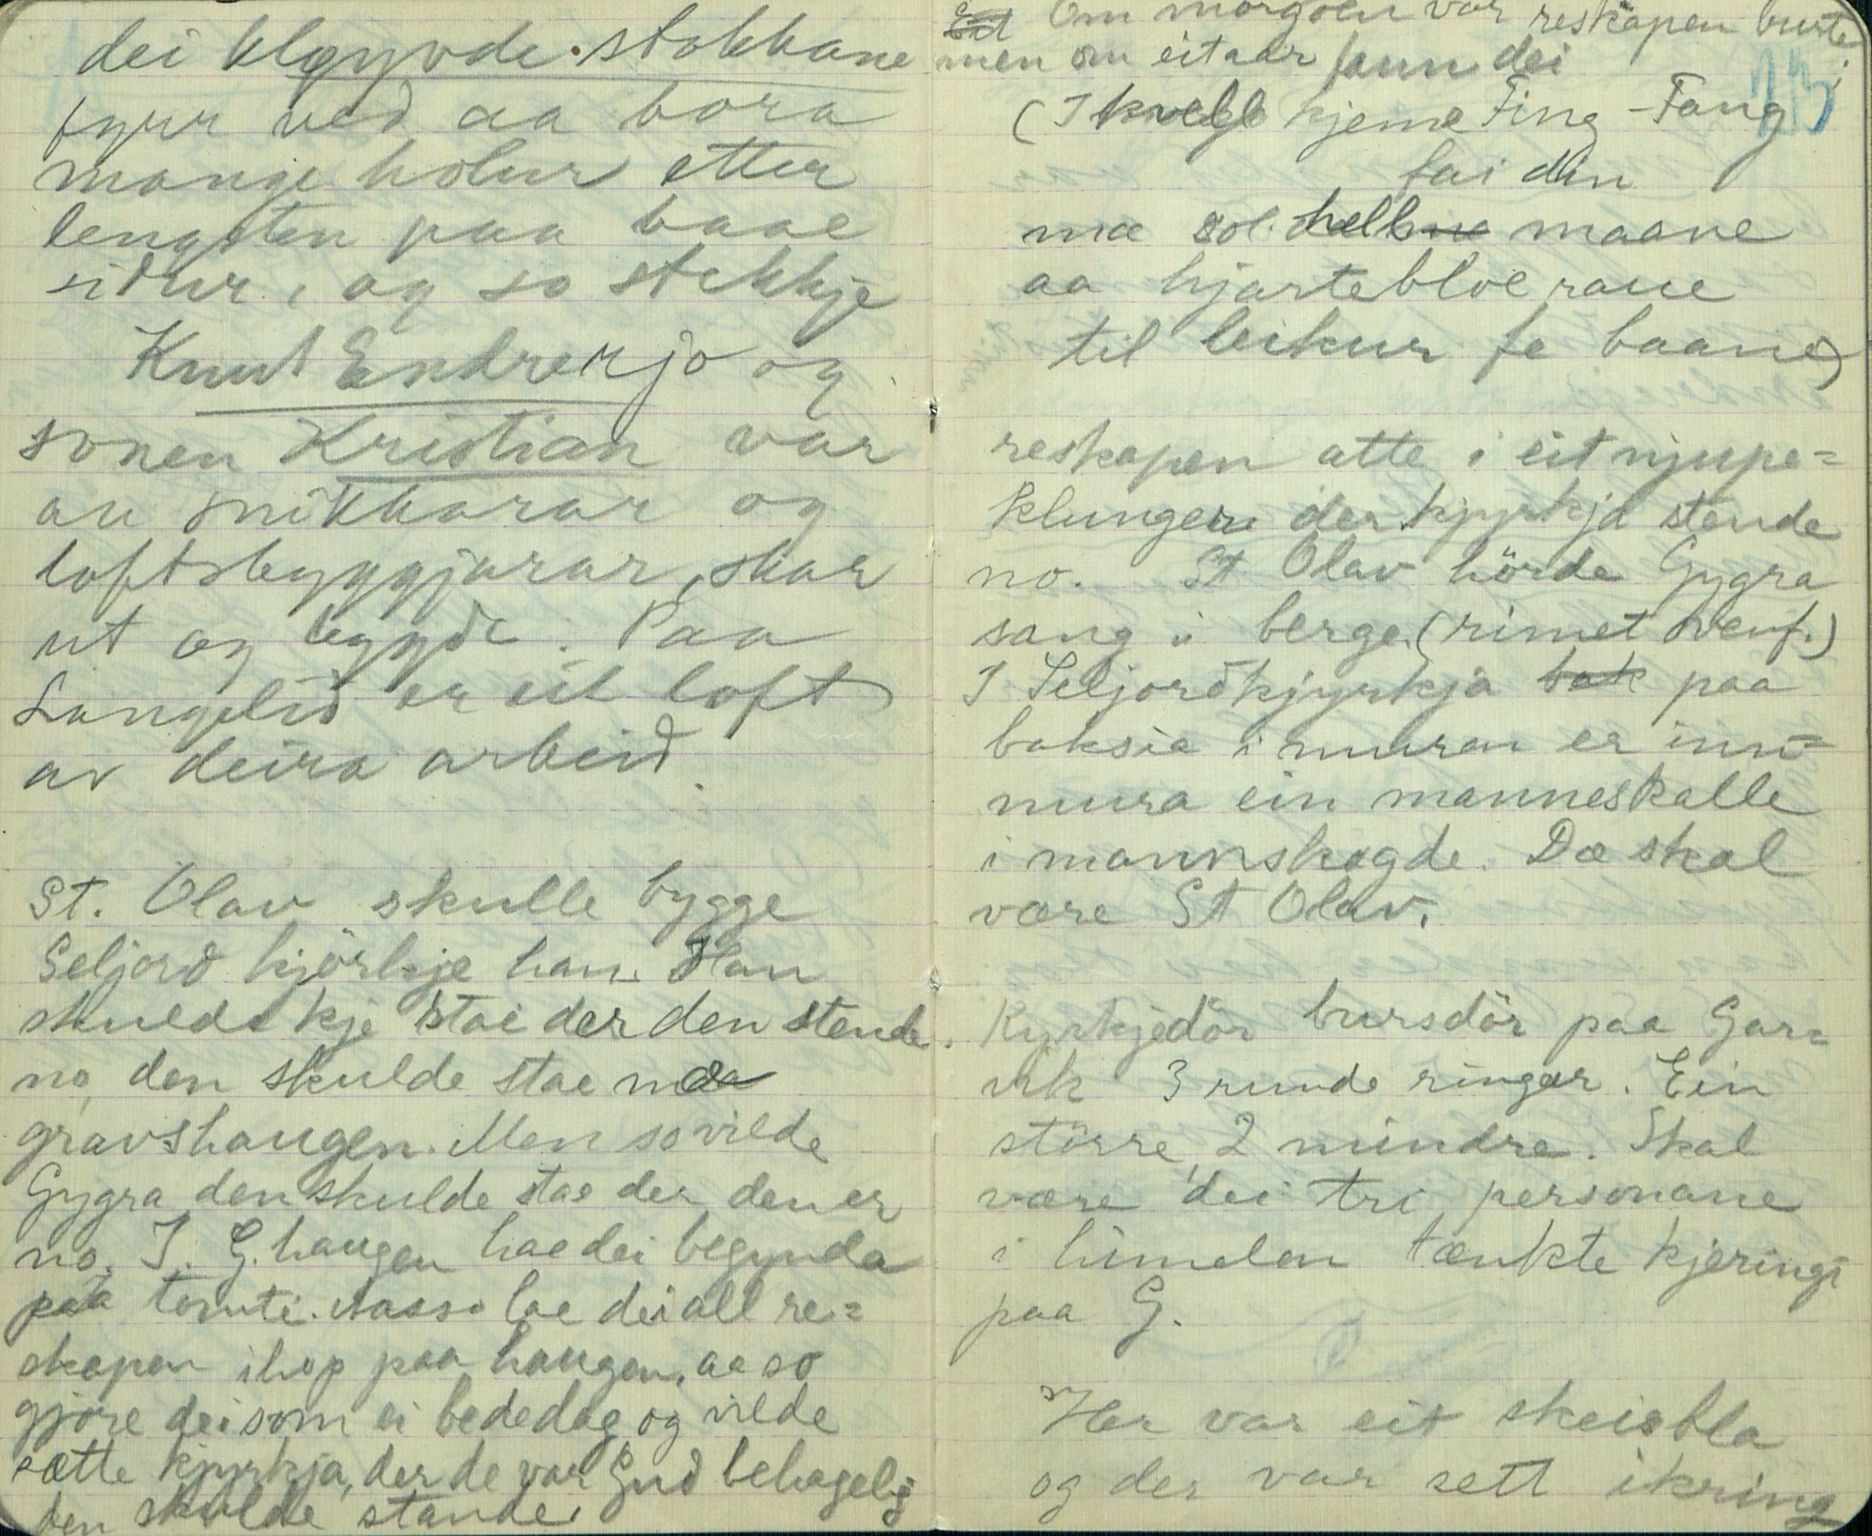 dei kløyvde stokkane
fyrr ved aa bora
mange holur etter
lengsten paa baae
sidur, og so stekkje
Knut Endrerjo og
sonen Kristian var
au snikkarar og
loftsbyggjarar, skar
ut og bygde. Paa
Langelid er eit loft
av deira arbeid.
St. Olav skulle bygge
Seljord kjörkje han. Han
skulde kje stai der den stende
no, den skulde stae
gravshaugen. Men so vilde
Gygra den skulde stae der den er
no. I G. haugen hae dei begynda
paa tomti. Aasso lae dei all re=
skapen ihop paa haugen, aa so
gjöre dei som ei bededag og vilde
sætte kjyrkja, der de var Gud behagelig
den skulde stande.
Om morgoen var reskapen burte
men om eit aar fann dei
213
(I kvell kjeme Fing-Fang
fai din
mæ sol hell maane
aa hjartebloe rane
til leikur fe baane)
reskapen atte i eit njupe=
klunger der kjyrkja stende
no. St Olav hörde Gygra
sang i berge (rimet ovenf.)
I Seljordkjyrkja bak paa
baksia i muren er inn=
mura ein manneskalle
i mannshøgde. Dæ skal
være St Olav.
Kyrkjedör bursdör paa Gar=
vik 3 runde ringar. Ein
större, 2 mindre. Skal
være dei tri personane
i himelen tænkte kjeringi
paa G.
Her var eit skeisbla
og der var sett ikring